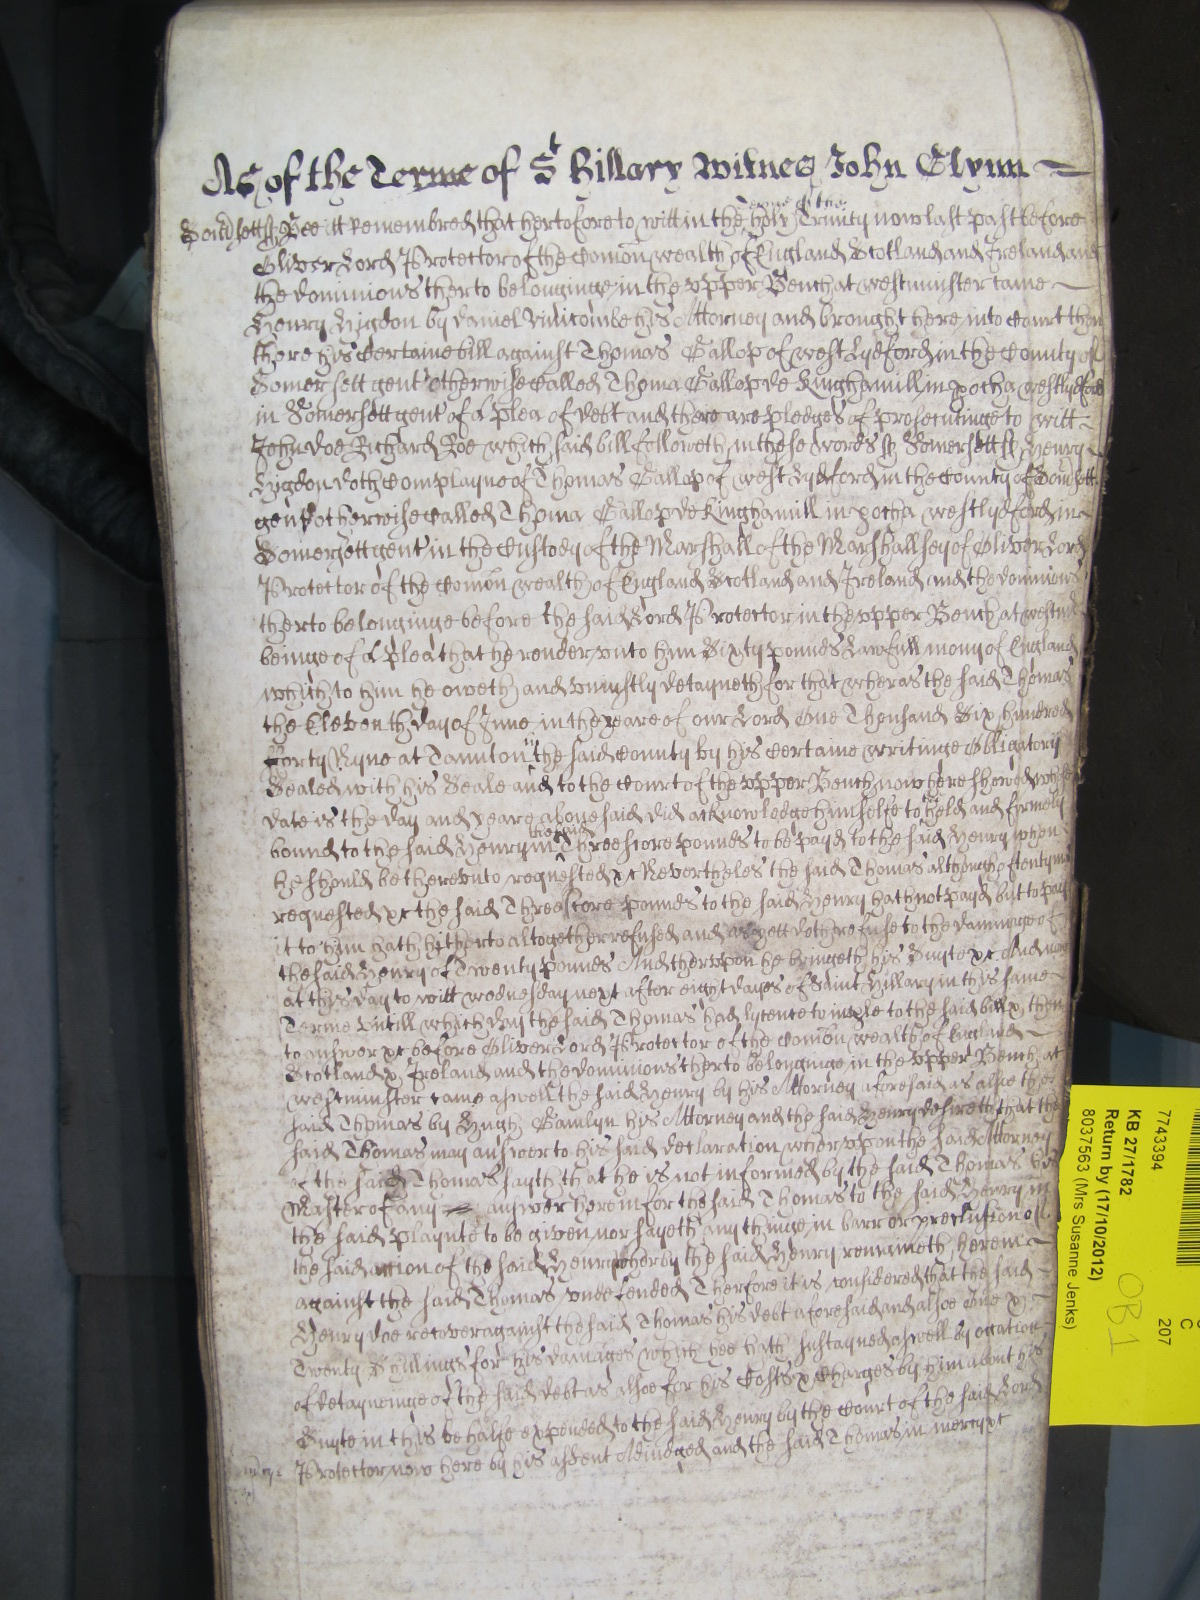 As of the Terme of St Hillary Witnes John Glynn
Somsett ss Bee itt Remembred that hertofore to witt in the terme of the holy Trinity now last past before
Oliver Lord Protector of the Comon wealth of England Scotland and Ireland and
the dominions therto belonginge in the vpper Bench at westminster came
Henry Lygdon by Daniel his Attorney and brought here into Court then
there his Certaine bill against Thomas Gallop of west Lydford in the County of
Somersett gent otherwise Called Thoma Gallop de Kinghamill in pocha westlydford
in Somersett gent of a plea of debt and there are pledges of prosecutinge to witt
John Doe Richard Roe which said bill followeth in these words ss Somersett ss Henry
Lygdon doth Complayne of Thomas Gallop of west Lydford in the County of Somsett
gent otherwise Called Thoma Gallop de Kinghamill in pocha westlydford in
Somersett gent in the Custody of the Marshall of the Marshallsey of Oliver Lord
Protector of the Comon wealth of England Scotland and Ireland and the dominions
therto belonginge before the said Lord Protector in the vpper Bench at westm
beinge of a plea that he render vnto him Sixty pounds Lawfull mony of England
which to him he oweth and vniustly detayneth for that wheras the said Thomas
the Eleventh day of June in the yeare of our Lord One Thousand Six hundred
Forty Nyne at Taunton in the said County by his Certaine writinge Obligatory
Sealed with his Seale and to the Court of the vpper Bench now here shewed whose
date is the day and yeare abovesaid did acknowledge himselfe to be held and firmely
bound to the said Henry in the said Threescore pounds to be payd to the said Henry when
he should be therevnto requested &c Neverthelesse the said Thomas although oftentymes
requested &c the said Threescore pounds to the said Henry hath not payd but to pay
it to him hath hitherto altogether refused and as yett doth refuse to the dammage of
the said Henry of Twenty pounds And thervpon he bringeth his Suyte &c And now
at this day to witt wednesday next after eight dayes of Saint Hillary in this same
Terme vntill which day the said Thomas had lycence to imple to the said bill & then
to answer &c before Oliver Lord Protector of the Comon wealth of England
Scotland & Ireland and the dominions therto belonginge in the vpper Bench at
westminster came aswell the said Henry by his Attorney aforesaid as alsoe the
said Thomas by Hugh Gamlyn his Attorney and the said Henry desireth that the
said Thomas may answer to his said declaration whervpon the said Attorney
of the said Thomas sayth that he is not informed by the said Thomas his
Master of any answer herein for the said Thomas to the said Henry in
the said playnte to be given nor sayeth any thinge in barr or preclusion of
the said action of the said Henry wherby the said Henry remaineth herein
against the said Thomas vndefended Therfore it is considered that the said
Henry doe recover against the said Thomas his debt aforesaid and alsoe One &
Twenty Shillings for his damages which hee hath sustayned aswell by occation
of detayneinge of the said debt as alsoe for his Costs & Charges by him about his
Suyte in this behalfe expended to the said Henry by the Court of the said Lord
Protector now here by his assent Adiudged and the said Thomas in mercy &c
7743394
207
C
KB 27/1782
Return by (17/10/2012)
8037563 (Mrs Susanne Jenks)
OB1